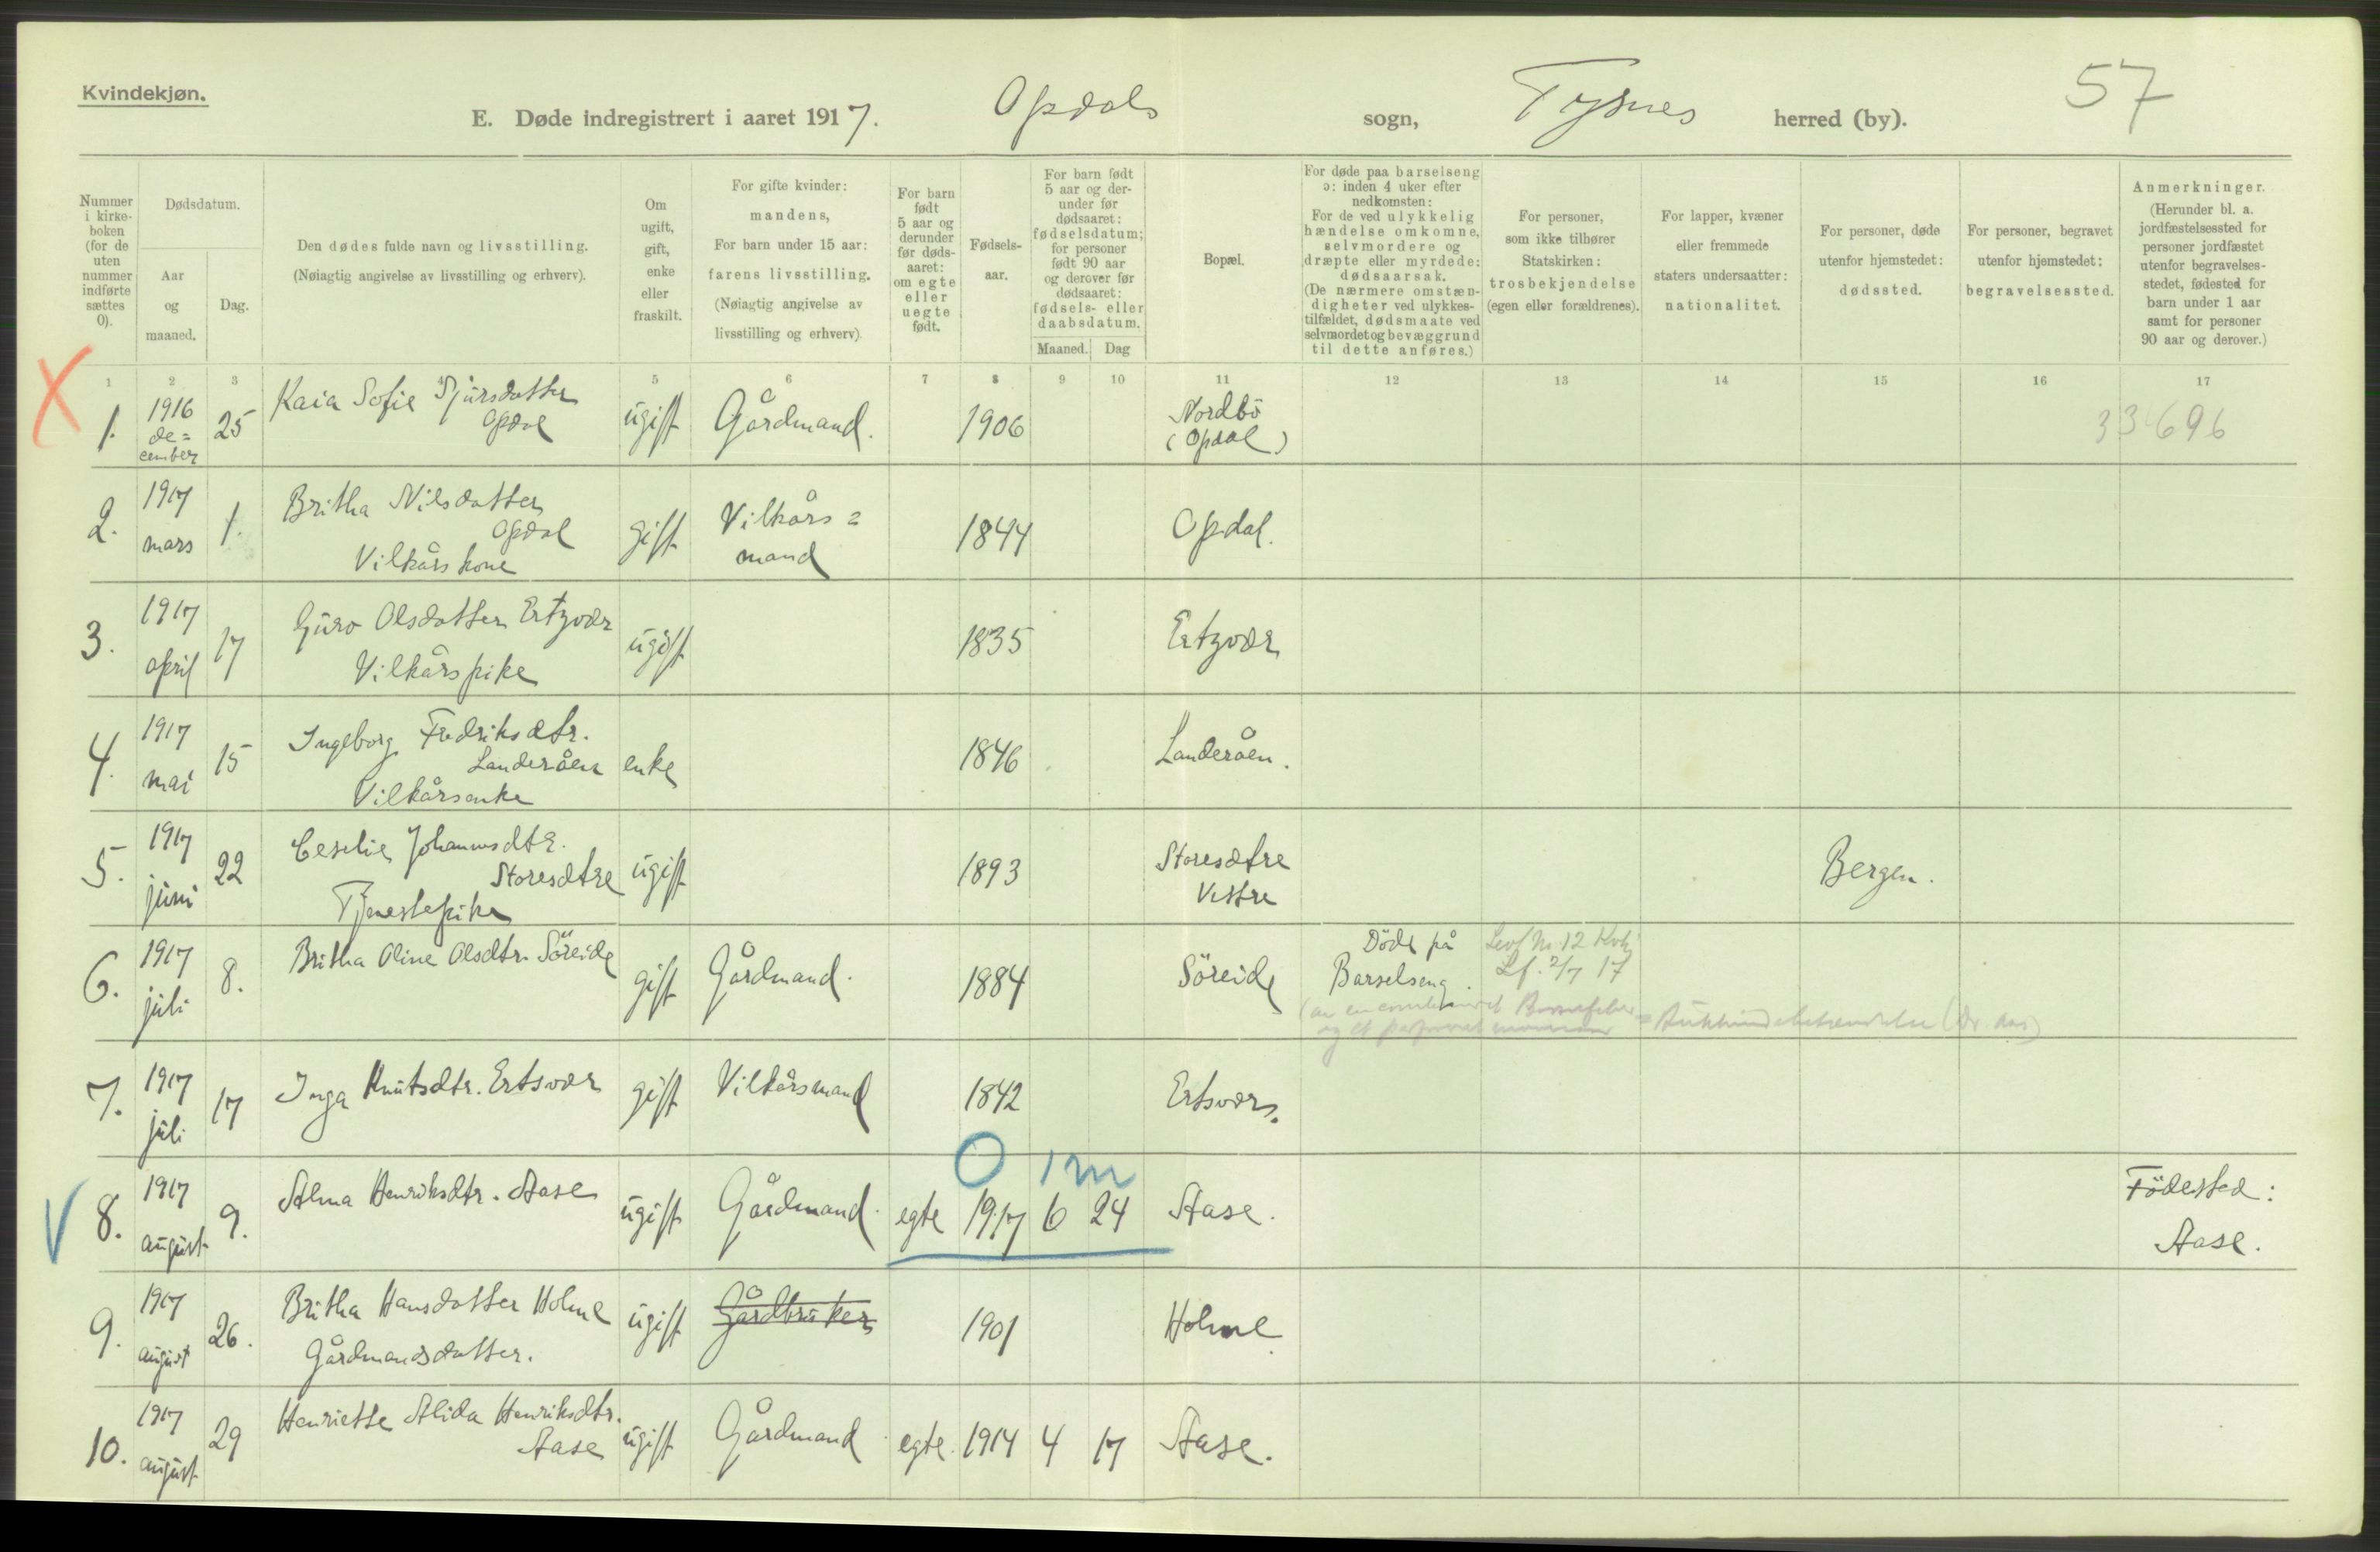 Kvindekjøn.
E. Døde indregistrert i aaret 1917. Opdals sogn, Tysnes herred (by). 57
Nummer i kirke-boken (for de uten nummer indførte sættes 0).
Dødsdatum.
Aar og maaned.
Dag.
Den dødes fulde navn og livsstilling.
(Nøiagtig angivelse av livsstilling og erhverv).
Om ugift, gift, enke eller fraskilt.
For gifte kvinder: mandens,
For barn under 15 aar: farens livsstilling.
(Nøiagtig angivelse av livsstilling og erhverv).
For barn født 5 aar og derunder før døds-aaret: om egte eller uegte født.
Fødsels-aar.
For barn født 5 aar og der-under før dødsaaret: fødselsdatum; for personer født 90 aar og derover før dødsaaret: fødsels- eller daabsdatum.
Maaned. Dag
Bopæl.
For døde paa barselseng ɔ: inden 4 uker efter nedkomsten:
For de ved ulykkelig hændelse omkomne, selvmordere og dræpte eller myrdede: dødsaarsak.
(De nærmere omstæn-digheter ved ulykkes-tilfældet, dødsmaate ved selvmordet og bevæggrund til dette anføres.)
For personer, som ikke tilhører Statskirken: trosbekjendelse (egen eller forældrenes).
For lapper, kvæner eller fremmede staters undersaatter: nationalitet.
For personer, døde utenfor hjemstedet: dødssted.
For personer, begravet utenfor hjemstedet: begravelsessted.
Anmerkninger.
(Herunder bl. a. jordfæstelsessted for personer jordfæstet utenfor begravelses-stedet, fødested for barn under 1 aar samt for personer 90 aar og derover.)
1 2 3 4 5 6 7 8 9 10 11 12 13 14 15 16 17
X 1. 1916 de=cember 25 Kaia Sofie Sjursdatter Opdal ugift Gårdmand. 1906 Nordbö (Opdal) 33696
2. 1917 mars 1. Britha Nilsdatter Opdal Vilkårskone gift Vilkårs=mand 1844 Opdal.
3. 1917 april 17 Guro Olsdatter Ertzvær Vilkårspike ugift 1835 Ertzvær
4. 1917 mai 15 Ingeborg Fredriksdtr. Landeråen Vilkårsenke enke 1846 Landeråen.
5. 1917 juni 22 Ceselie Johannesdtr. Storesætre Tjenestepike ugift 1893 Storesætre Vestre Bergen.
6. 1917 juli 8. Britha Oline Olsdtr. Söreide gift Gårdmand. 1884 Söreide Döde på Barselseng. Lev f Nr. 12 Kvk Lf. 2/7 17
7. 1917 juli 17 Inga Knutsdtr. Ertsvær gift Vilkårsmand 1842 Ertsvær.
0 1 m
V 8. 1917 august 9. Alma Henriksdtr. Aase ugift Gårdmand. egte 1917 6 24 Aase. Födested: Aase.
9. 1917 august 26. Britha Hansdatter Holme Gårdmandsdatter. ugift Gårdbruker 1901 Holme
10. 1917 august 29 Henriette Alida Henriksdtr. Aase ugift Gårdmand egte. 1914 4 17 Aase.